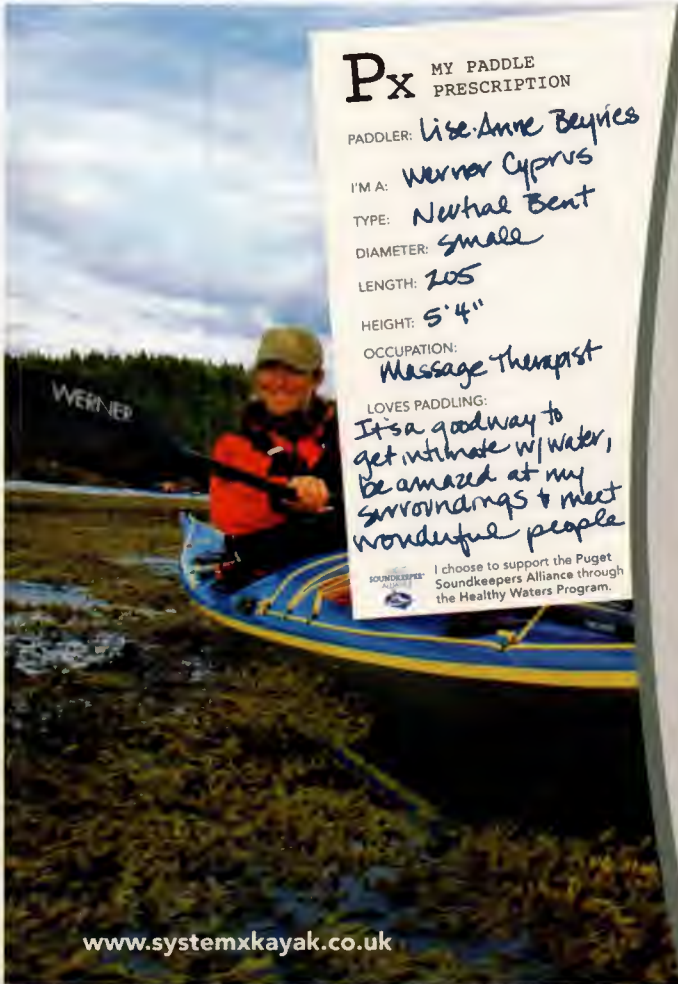 Px MY PADDLE
PRESCRIPTION
PADDLER: Lise-Anne Beyries
I'M A: Werner Cyprus
TYPE: Neutral Bent
DIAMETER: Small
LENGTH: 205
HEIGHT: 5'4"
OCCUPATION:
Massage Therapist
LOVES PADDLING:
It's a good way to
get intimate w/ water,
be amazed at my
surroundings & meet
wonderful people
SOUNDKEEPER
ALLIANCE
I choose to support the Puget
Soundkeepers Alliance through
the Healthy Waters Program.
WERNER
www.systemxkayak.co.uk